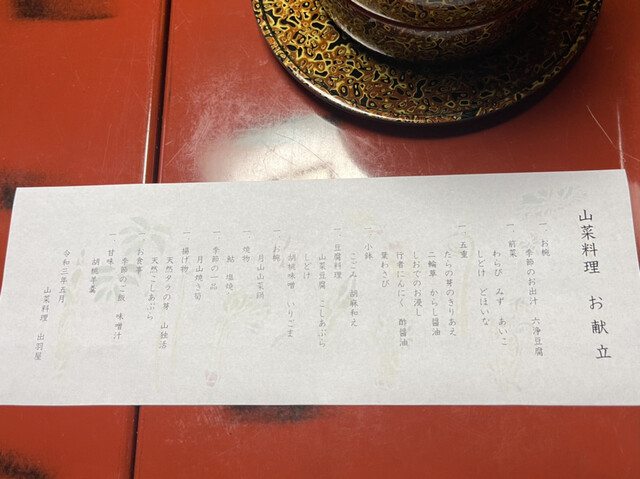 山菜料理 お献立
一、お椀
季節のお出汁 六浄豆腐
一、前菜
わらび みず あいこ
しどけ どほいな
一、五重
たらの芽のきりあえ
二輪草 からし醤油
しおでのお浸し
行者にんにく 酢醤油
葉わさび
一、小鉢
こごみ 胡麻和え
一、豆腐料理
山菜豆腐 こしあぶら
しどけ
胡桃味噌 いりごま
一、お椀
月山山菜鍋
一、焼物
鮎 塩焼
一、季節の一品
月山焼き筍
一、揚げ物
天然タラの芽 山独活
天然こしあぶら
一、お食事
季節のご飯 味噌汁
一、甘味
胡桃羊羹
令和三年五月
山菜料理 出羽屋